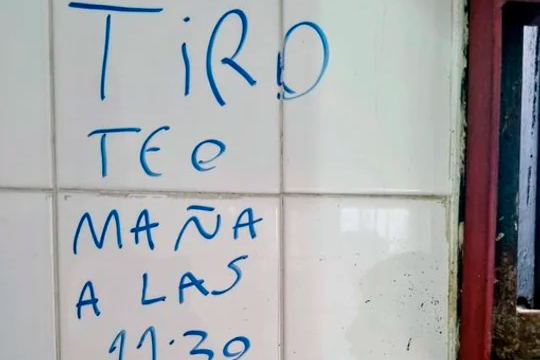 TiRO
TEO
MAÑA
A LAS
11:30